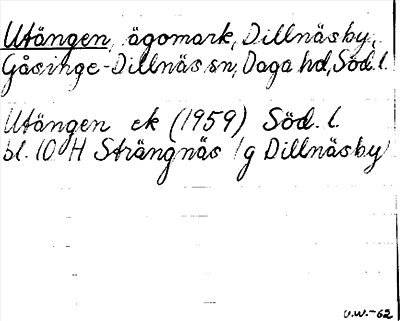 Utängen, ägomark, Dillnäsby,
Gåsinge-Dillnäs sn, Daga hd, Söd. l.
Utängen ek (1959) Söd. l.
bl. 10 H Strängnäs (g Dillnäsby)
U.W.-62